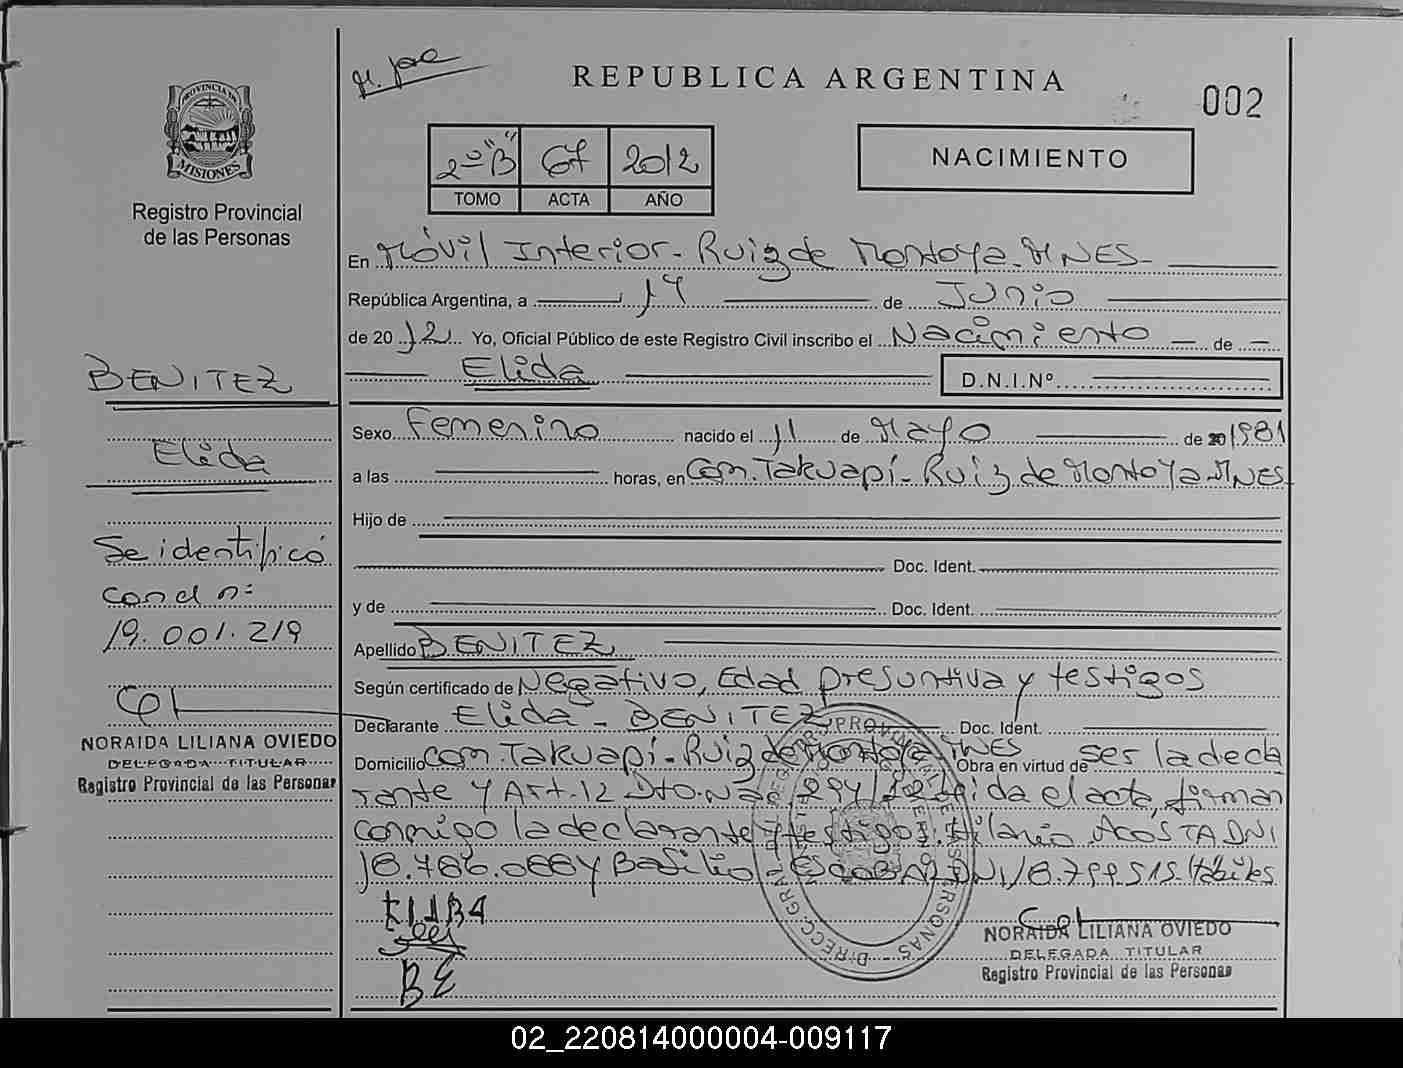 REPUBLICA ARGENTINA
002
PROVINCIA DE
MISIONES
Registro Provincial
de las Personas
2º "B" 67 2012
TOMO ACTA AÑO
NACIMIENTO
En Móvil Interior - Ruiz de Montoya - MNES -
República Argentina, a 14 de Junio
de 2012 Yo, Oficial Público de este Registro Civil inscribo el Nacimiento de
Elida
D.N.I.Nº
BENITEZ
Elida
Se identificó
con d nº
19.001.219
NORAIDA LILIANA OVIEDO
DELEGADA TITULAR
Registro Provincial de las Personas
Sexo Femenino nacido el 11 de Mayo de 20 1981
a las horas, en Com. Takuapí - Ruiz de Montoya - MNES
Hijo de
Doc. Ident.
y de Doc. Ident.
Apellido BENITEZ
Según certificado de Negativo, Edad presuntiva y testigos
Declarante Elida - BENITEZ Doc. Ident.
Domicilio Com. Takuapí - Ruiz de Montoya MNES Obra en virtud de ser la decla
rante y Art. 12 Dto. Nac. el acta, firman
conmigo la declarante y testigos: Hilario ACOSTA DNI
18.786.088 y Basilio ESCOBAR DNI 18.799.515 Hábiles
ELIDA
BE
NORAIDA LILIANA OVIEDO
DELEGADA TITULAR
Registro Provincial de las Personas
02_220814000004-009117